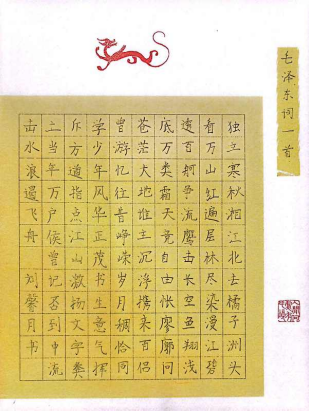 毛泽东词一首
独立寒秋湘江北去橘子洲头
看万山红遍层林尽染漫江碧
透百舸争流鹰击长空鱼翔浅
底万类霜天竞自由怅廖廓问
苍茫大地谁主沉浮携来百侣
曾游忆往昔峥嵘岁月稠恰同
学少年风华正茂书生意气挥
斥方遒指点江山激扬文字粪
土当年万户侯曾记否到中流
击水浪遏飞舟 刘馨月书